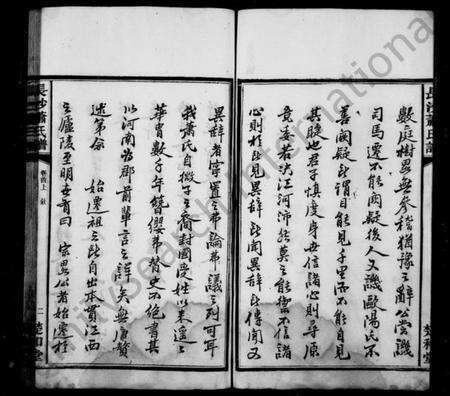 長沙蕭氏譜
數庭樹畧無參稽猶豫之辭公嘗譏
司馬遷不能闕疑後人又譏歐陽氏不
善闕疑此謂目能見千里而不能自見
其睫也君子慎度身世信諸心則尋原
竟委若決江河沛然莫之能禦不信諸
心則於此見異辭於此聞異辭於傳聞又
異辭者寧置之弗論弗議之列可耳
我蕭氏自微子之裔封國受姓以來遙遙
華胄數千年簪纓弗替史不絕書其
以河南為郡前輩言之詳矣無庸贅
述第念 始遷祖之所自出本貫江西
之廬陵至明吾首曰 宗畧公者始遷於
長沙蕭氏譜
卷首上 敘
二